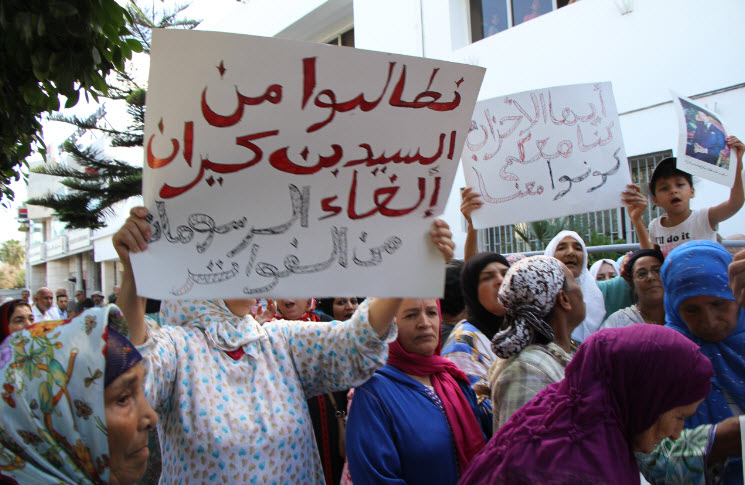 نطالبوا من
السيد بن كيران
إلغاء الرسومات
من الفواتر
أيها الأحزاب
كونوا معنا
do it